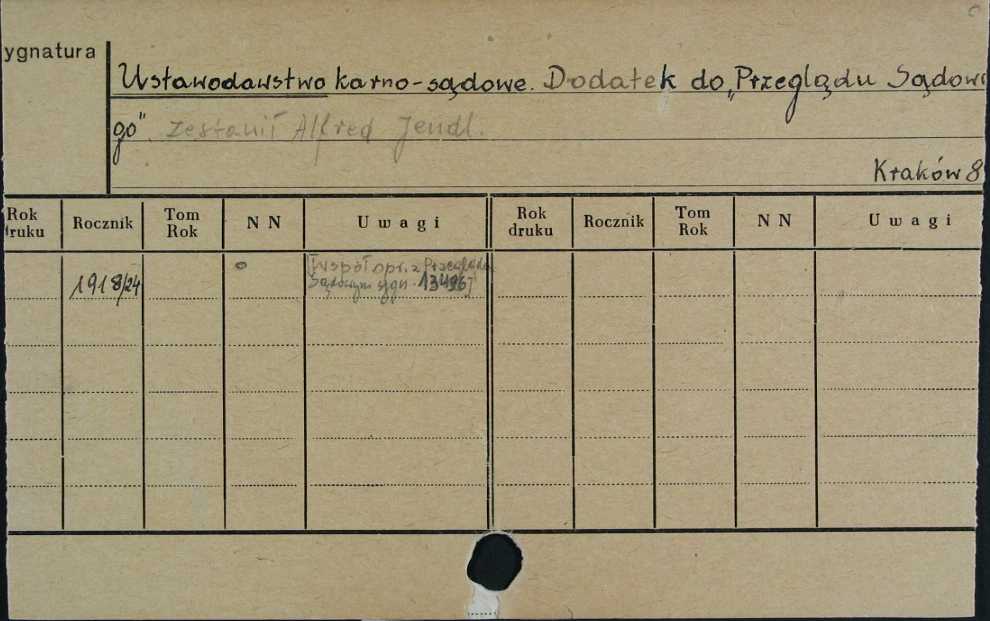 ygnatura
Ustawodawstwo karno-sądowe. Dodatek do „Przeglądu Sądowe
go". zestawił Alfred Jendl.
Kraków 8
Rok druku Rocznik Tom Rok N N Uwagi Rok druku Rocznik Tom Rok N N Uwagi
1918/24 [Współopr. z Przeglądem
Sądowym sygn. 13496]